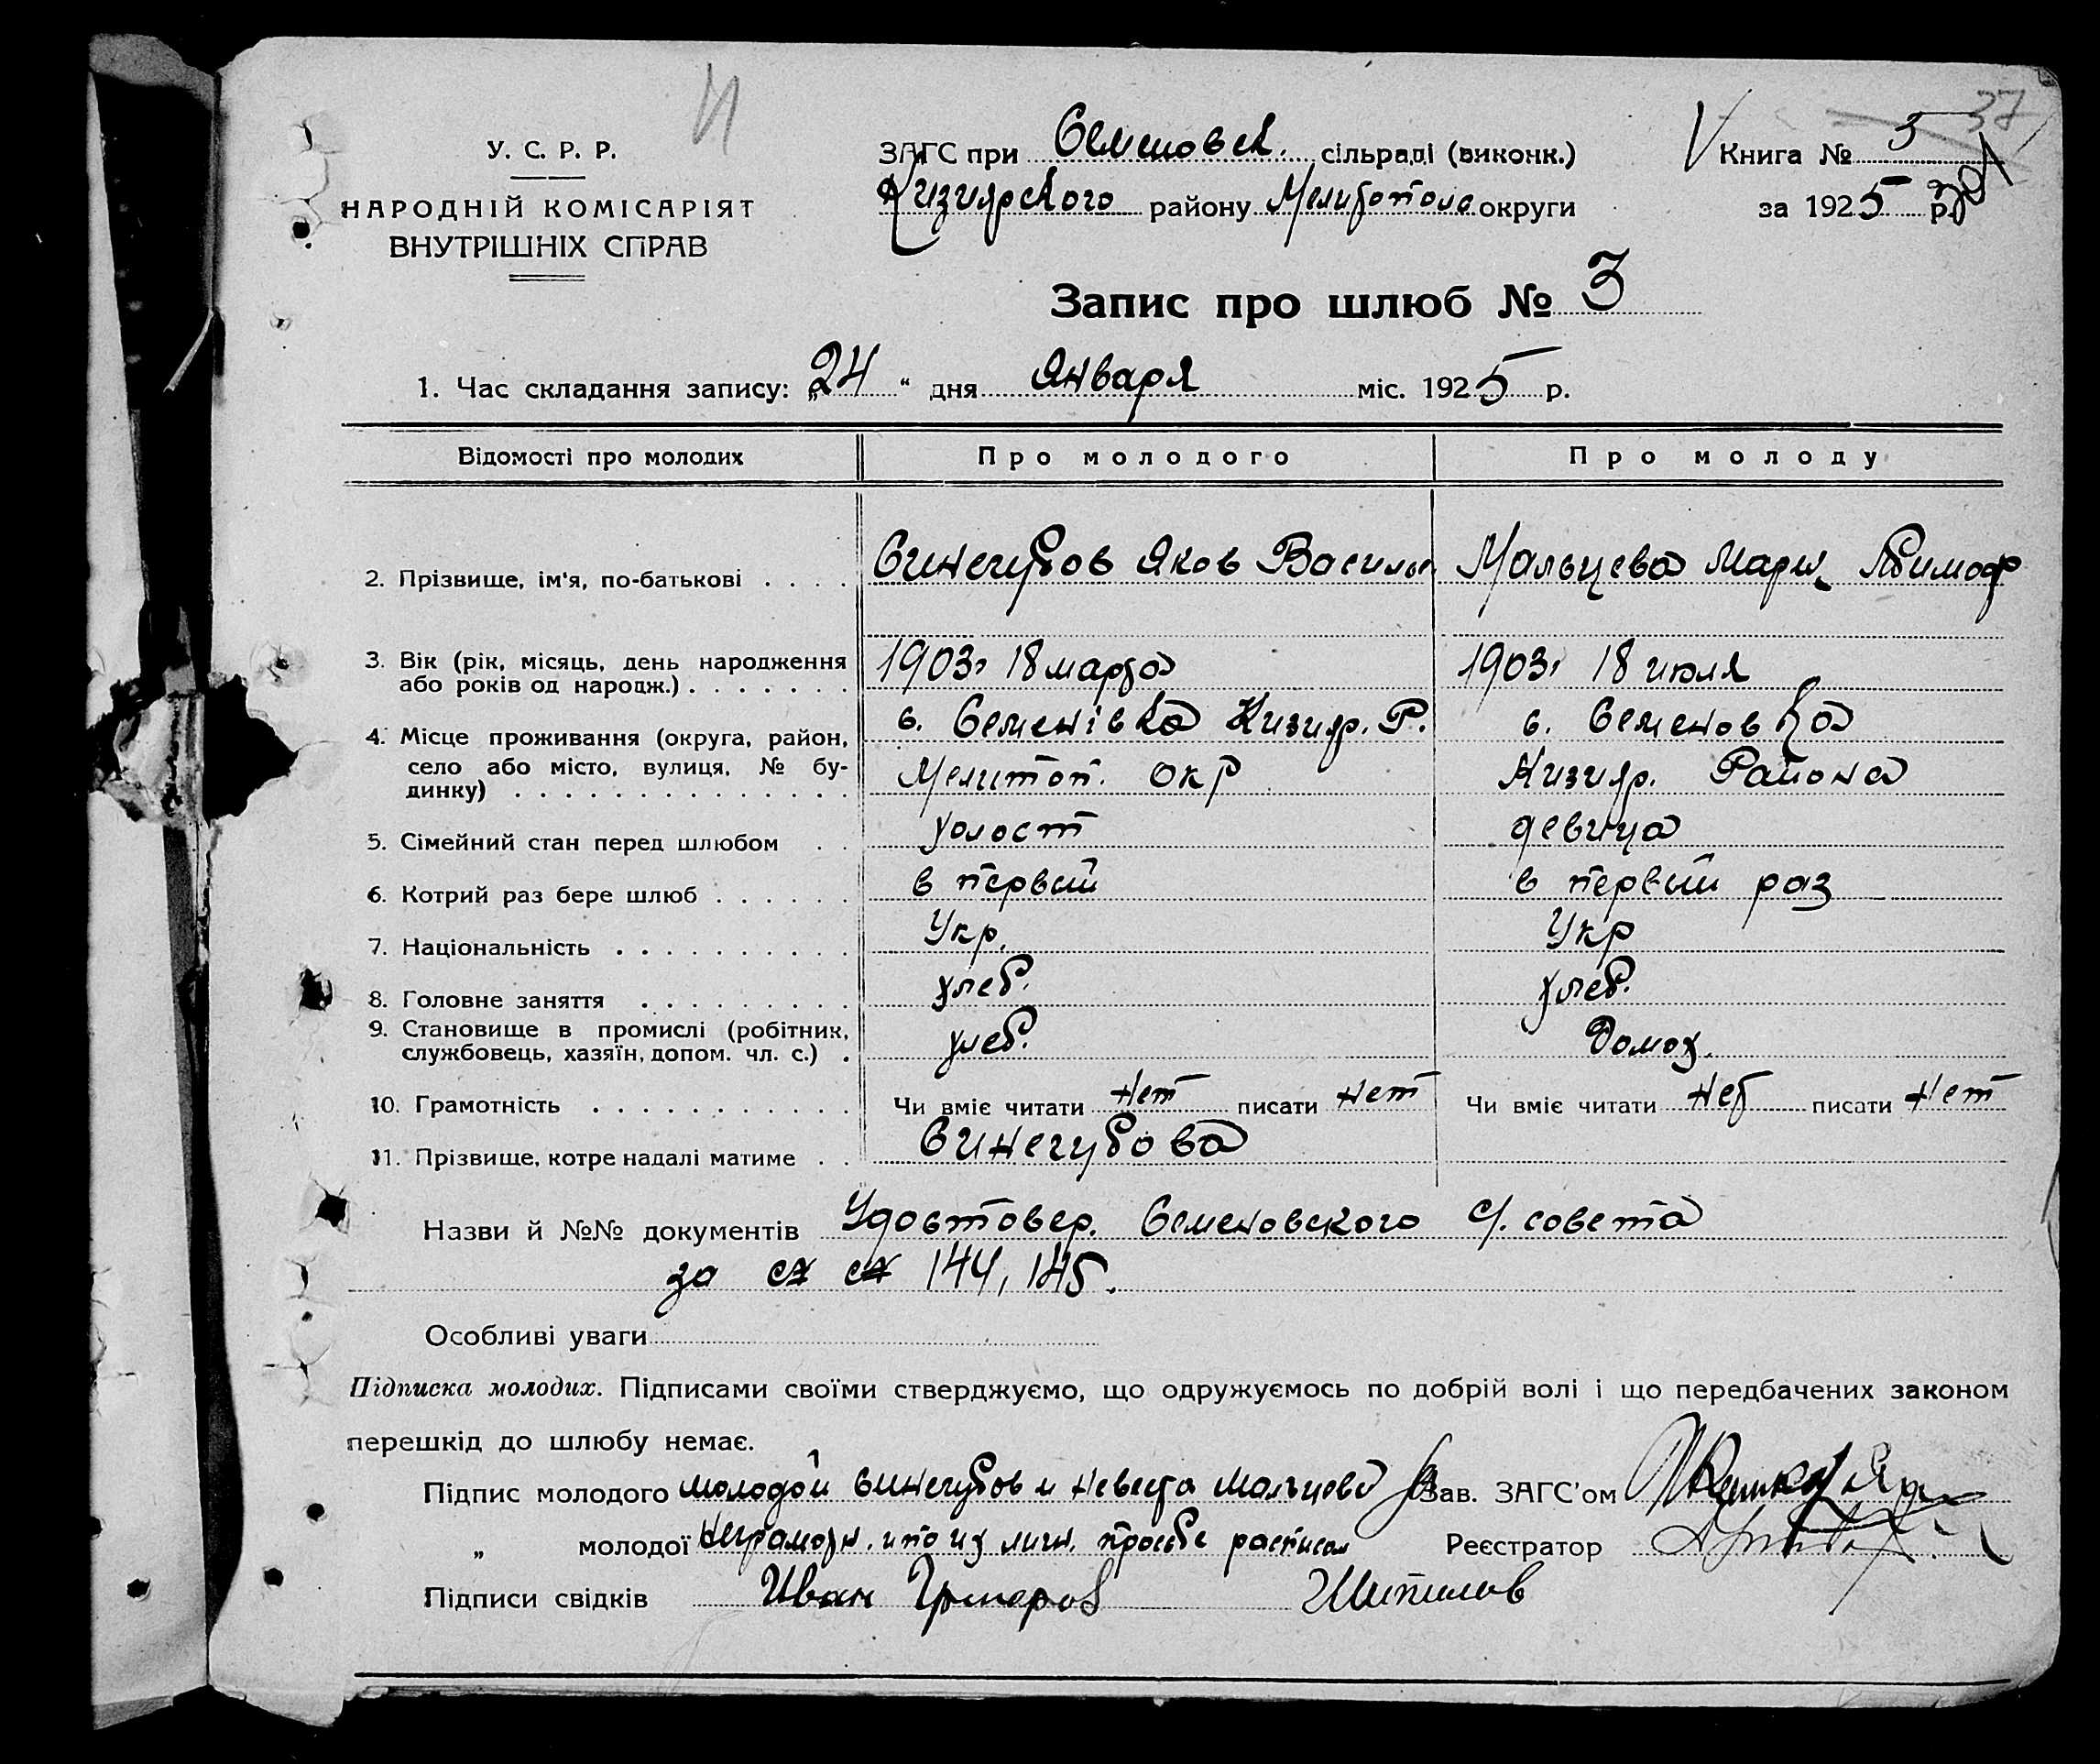 У. С. Р. Р.
НАРОДНІЙ КОМІСАРІЯТ
ВНУТРІШНІХ СПРАВ
ЗАГС при Семеновск. сільраді (виконк.)
Кизиярского району Мелитополь округи
Книга № 5
за 1925 р.
37
Запис про шлюб № 3
1. Час складання запису: „24“ дня Января міс. 1925 р.
Відомості про молодих Про молодого Про молоду
2. Прізвище, ім'я, по-батькові . . . . Синегубов Яков Василь Мальцева Мария
3. Вік (рік, місяць, день народження
або років од народж.) . . . . . . . 1903г 18 марта 1903г 18 июля
4. Місце проживання (округа, район,
село або місто, вулиця, № бу-
динку) . . . . . . . . . . . . . .
с. Семенівка Кизияр. Р. с. Семеновка
Мелитоп. окр Кизияр. Района
5. Сімейний стан перед шлюбом . . холост девица
6. Котрий раз бере шлюб . . . . . . в первый в первый раз
7. Національність . . . . . . . . . . Укр. Укр
8. Головне заняття . . . . . . . . . хлеб. хлеб.
9. Становище в промислі (робітник,
службовець, хазяїн, допом. чл. с.) . хлеб. Домох.
10. Грамотність . . . . . . . . . . . Чи вміє читати Нет писати Нет Чи вміє читати Нет писати Нет
11. Прізвище, котре надалі матиме . . Синегубова
Назви й №№ документів Удостовер. Семеновского С/. совета
за 144, 145.
Особливі уваги
Підписка молодих. Підписами своїми стверджуємо, що одружуємось по добрій волі і що передбачених законом
перешкід до шлюбу немає.
Підпис молодого молодой Синегубов и Невеста Мальцева Зав. ЗАГС'ом
„ молодої Неграмотн. и по их личн. просьбе расписал Реєстратор
Підписи свідків Иван Шипилов